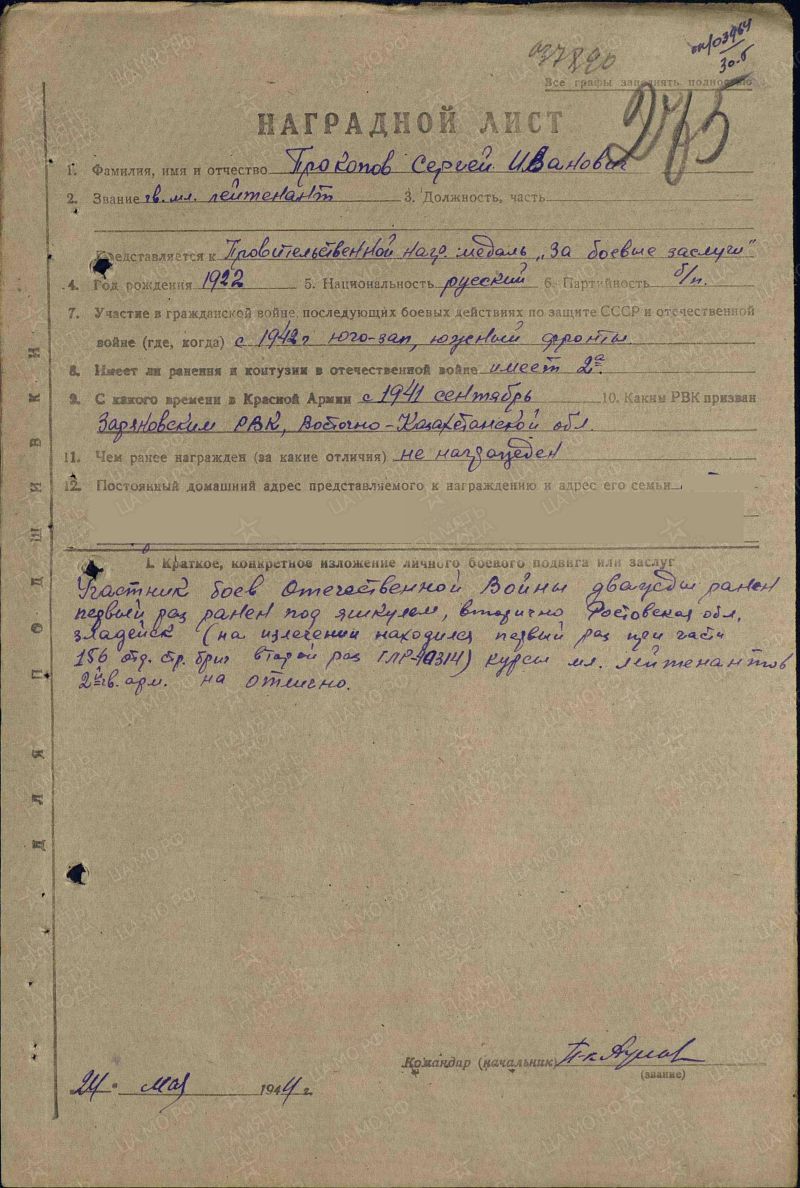 037890
Все графы заполнять полностью
275
НАГРАДНОЙ ЛИСТ
1. Фамилия, имя и отчество Прокопов Сергей Иванович
2. Звание гв. мл. лейтенант 3. Должность, часть
Представляется к Провительственной нагр. медаль „За боевые заслуги"
4. Год рождения 1922 5. Национальность русский 6. Партийность б/п.
7. Участие в гражданской войне, последующих боевых действиях по защите СССР и отечественной
войне (где, когда) с 1942 г юго-зап, южный фронты.
8. Имеет ли ранения и контузии в отечественной войне имеет 2а.
9. С какого времени в Красной Армии с 1941 сентябрь 10. Каким РВК призван
Заряновским РВК, Восточно-Казахстанской обл.
11. Чем ранее награжден (за какие отличия) не награжден
12. Постоянный домашний адрес представляемого к награждению и адрес его семьи
I. Краткое, конкретное изложение личного боевого подвига или заслуг
Участник боев Отечественной Войны дважды ранен
первый раз ранен под яшкулем, вторично Ростовская обл.
(на излечении находился первый раз при части
156 отд. стр. бриг второй раз ) курсы мл. лейтенантов
2й гв. арм. на отлично.
Командир (начальник)
(звание)
24 мая 1944 г.
ДЛЯ ПОДШИВКИ